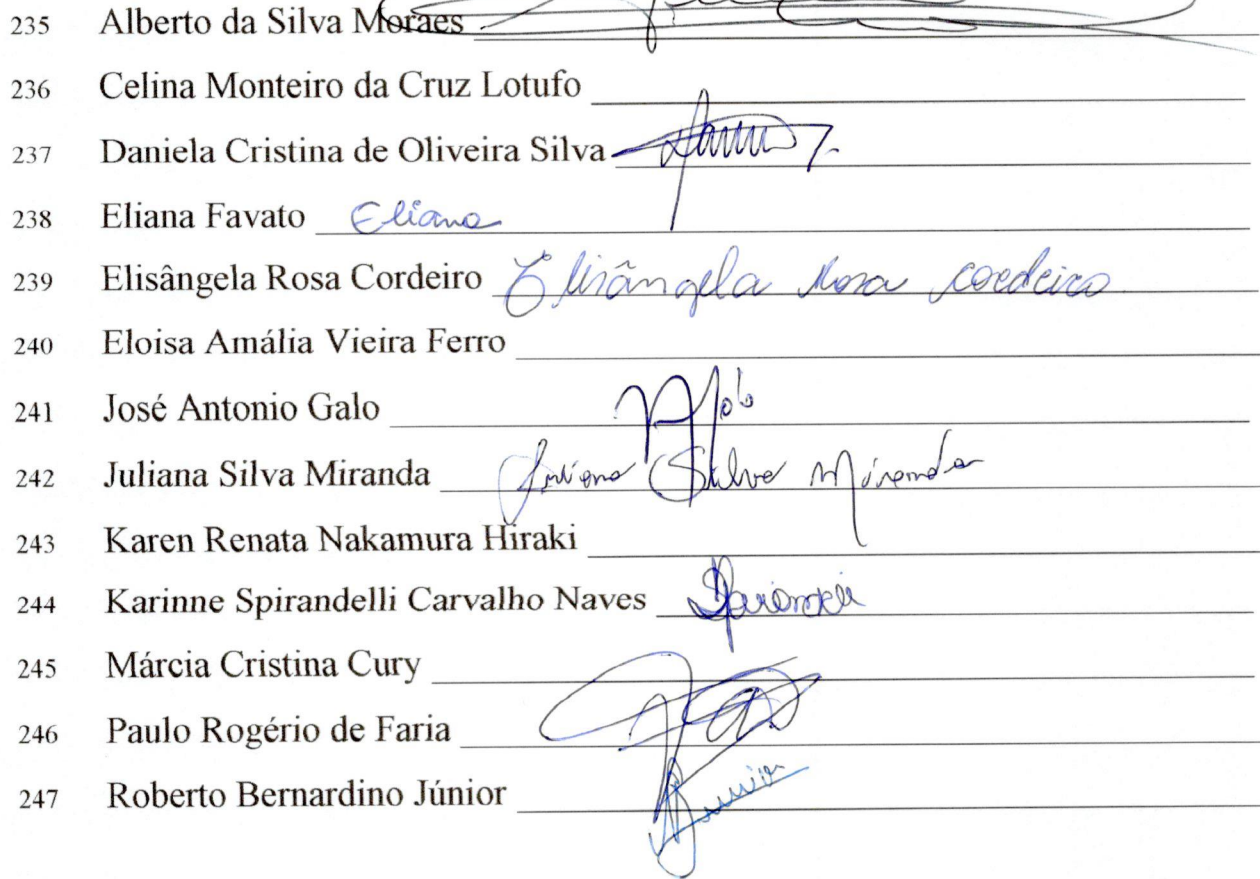 235 Alberto da Silva Moraes
236 Celina Monteiro da Cruz Lotufo
237 Daniela Cristina de Oliveira Silva
238 Eliana Favato Eliana
239 Elisângela Rosa Cordeiro Elisângela Rosa Cordeiro
240 Eloisa Amália Vieira Ferro
241 José Antonio Galo
242 Juliana Silva Miranda Juliana Silva Miranda
243 Karen Renata Nakamura Hiraki
244 Karinne Spirandelli Carvalho Naves
245 Márcia Cristina Cury
246 Paulo Rogério de Faria
247 Roberto Bernardino Júnior Junior